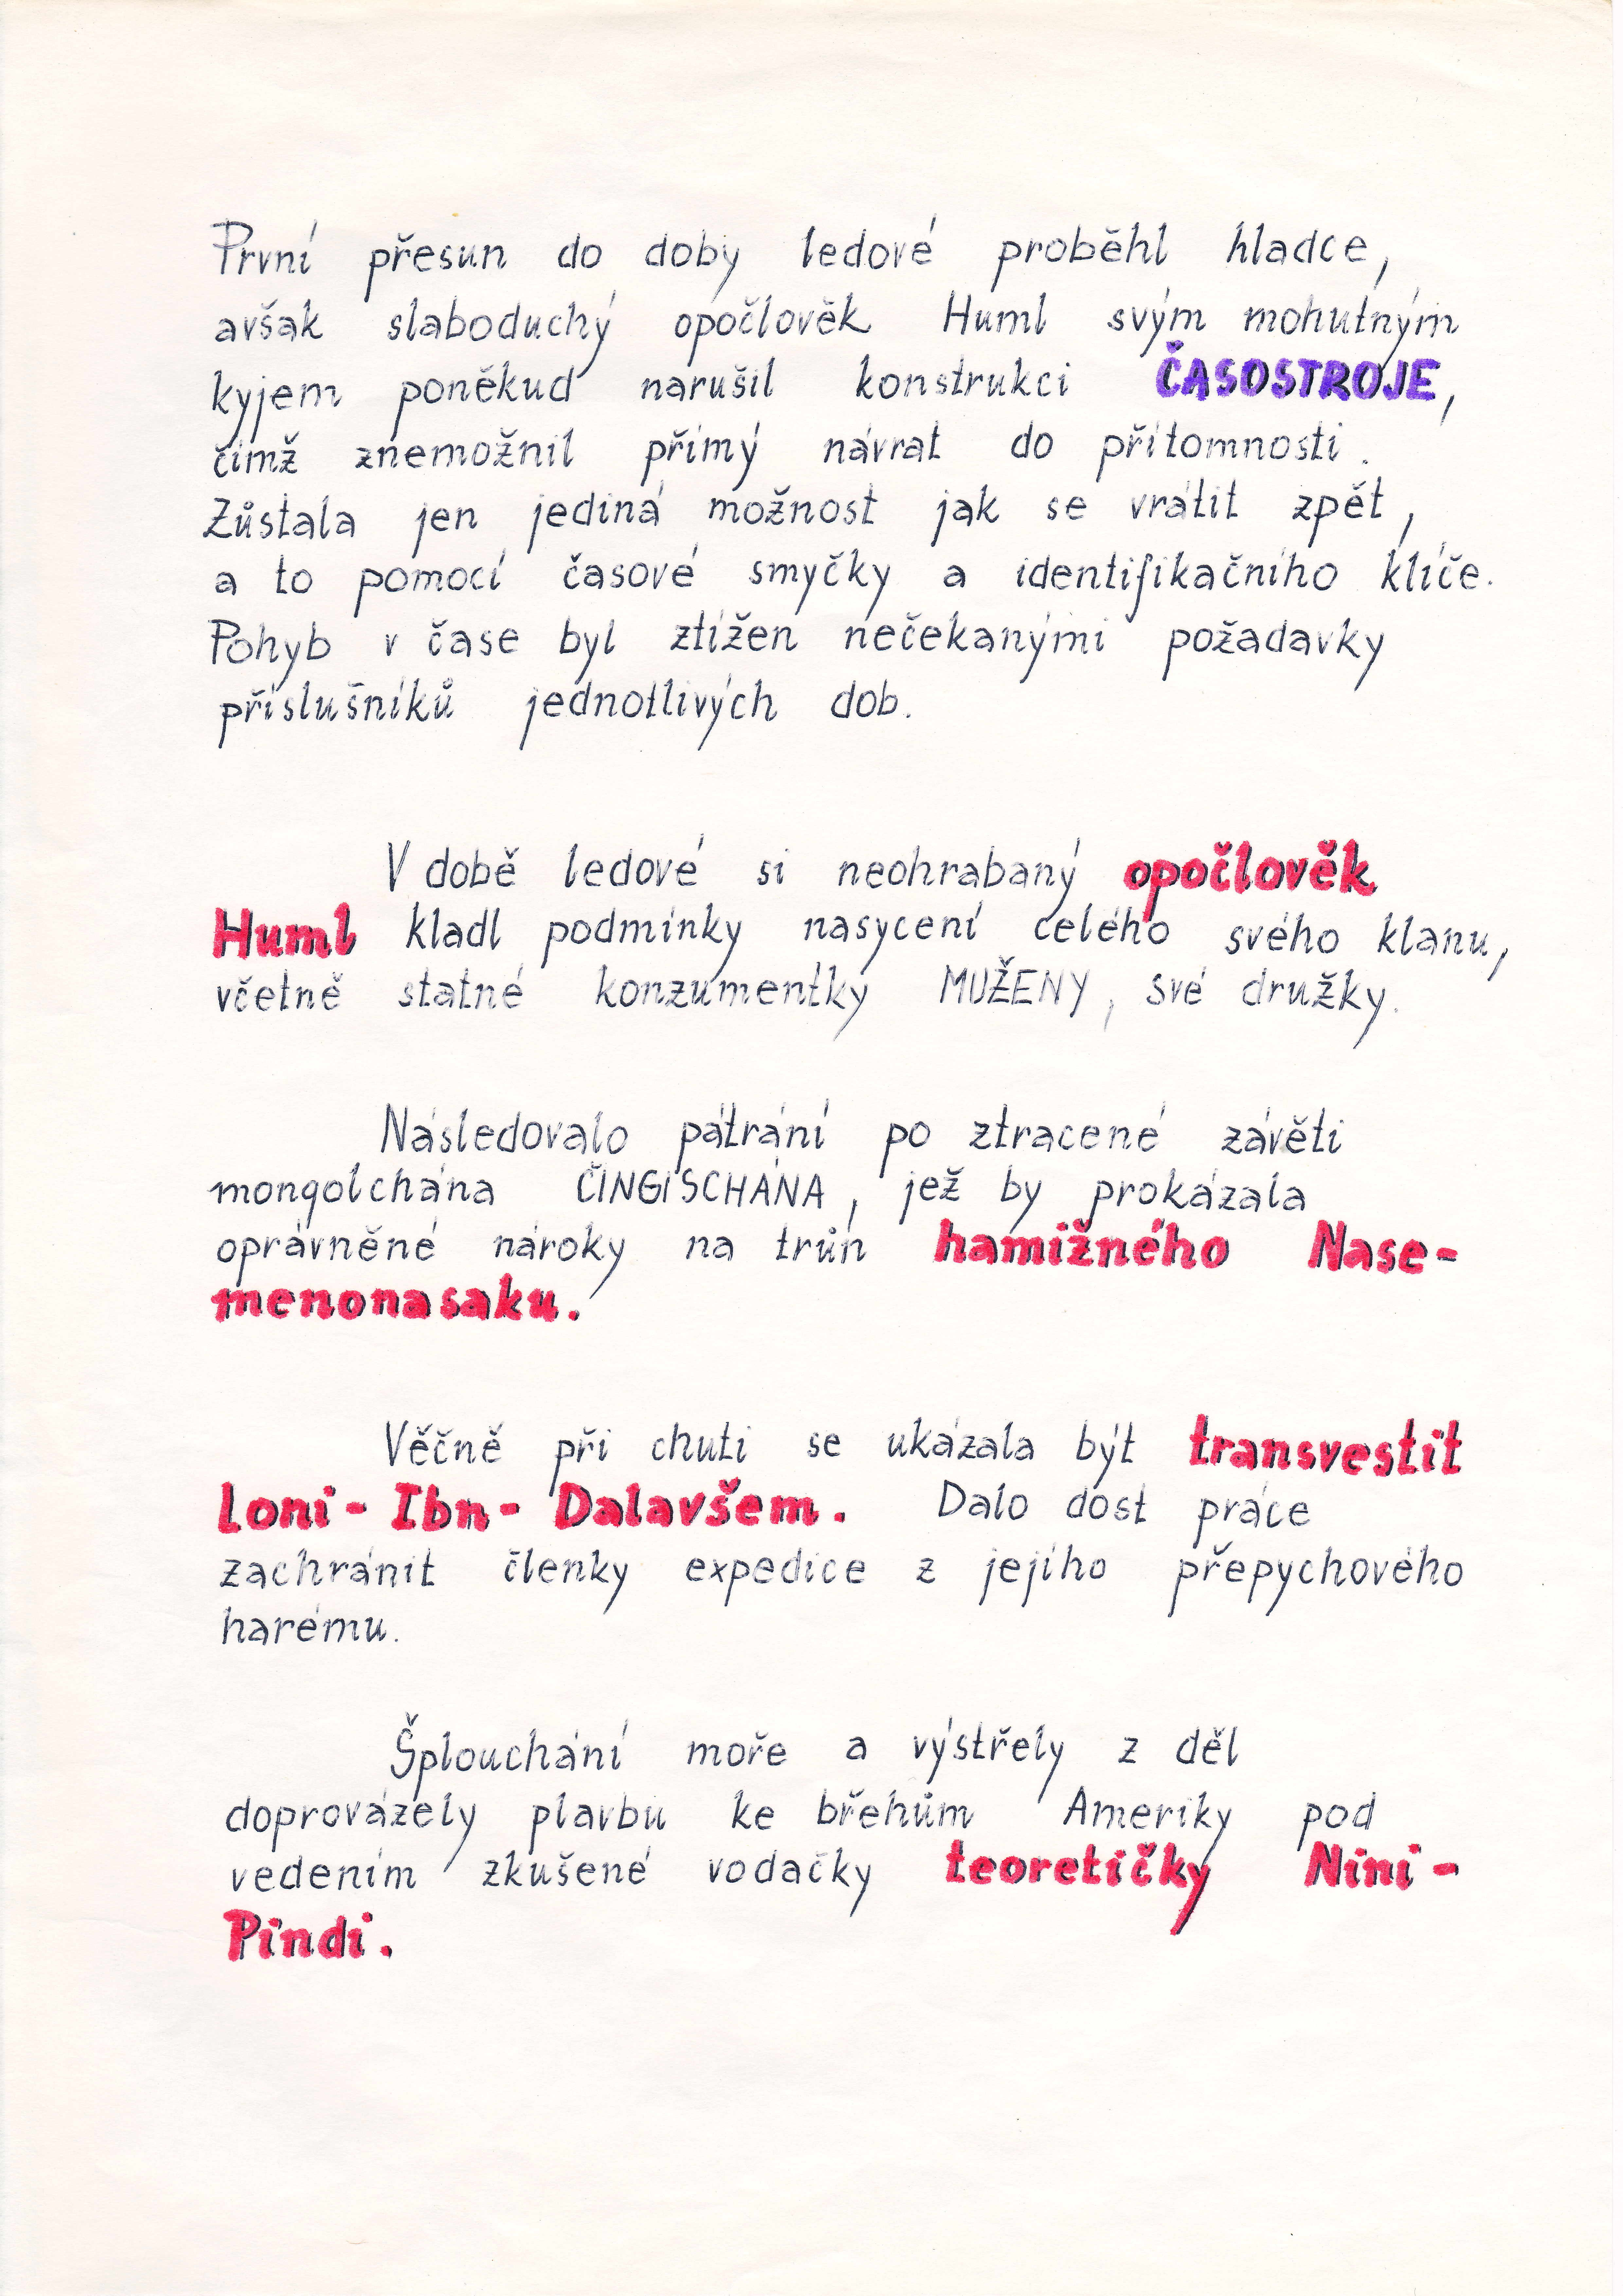 První přesun do doby ledové proběhl hladce,
avšak slaboduchý opočlověk Huml svým mohutným
kyjem poněkud narušil konstrukci ČASOSTROJE,
čímž znemožnil přímý návrat do přítomnosti.
Zůstala jen jediná možnost jak se vrátit zpět,
a to pomocí časové smyčky a identifikačního klíče.
Pohyb v čase byl ztížen nečekanými požadavky
příslušníků jednotlivých dob.
V době ledové si neohrabaný opočlověk
Huml kladl podmínky nasycení celého svého klanu,
včetně statné konzumentky MUŽENY, své družky.
Následovalo pátrání po ztracené závěti
mongolchána ČINGISCHÁNA, jež by prokázala
oprávněné nároky na trůn hamižného Nase-
menonasaku.
Věčně při chuti se ukázala být transvestit
Loni-Ibn-Dalavšem. Dalo dost práce
zachránit členky expedice z jejího přepychového
harému.
Šplouchání moře a výstřely z děl
doprovázely plavbu ke břehům Ameriky pod
vedením zkušené vodačky teoretičky Nini-
Pindi.